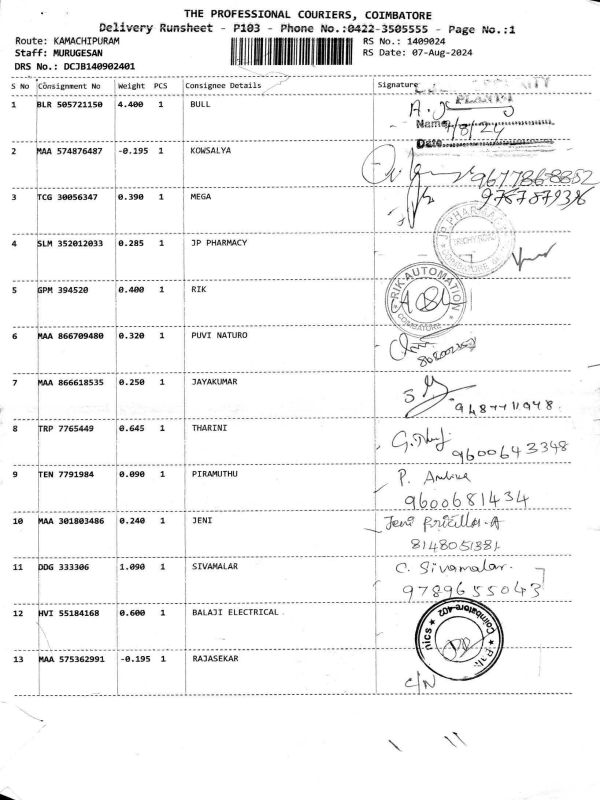 THE PROFESSIONAL COURIERS, COIMBATORE
Delivery Runsheet - P103 - Phone No.:0422-3505555 - Page No.:1
Route: KAMACHIPURAM
RS No.: 1409024
Staff: MURUGESAN
RS Date: 07-Aug-2024
DRS No.: DCJB140902401
S No Consignment No Weight PCS Consignee Details Signature
1 BLR 505721150 4.400 1 BULL
Name
7/8/24
Date
2 MAA 574876487 -0.195 1 KOWSALYA
9677868882
3 TCG 30056347 0.390 1 MEGA
JP PHARMACY
4 SLM 352012033 0.285 1 JP PHARMACY
5 GPM 394520 0.400 1 RIK
RIK AUTOMATION
COIMBATORE
6 MAA 866709480 0.320 1 PUVI NATURO
7 MAA 866618535 0.250 1 JAYAKUMAR
8 TRP 7765449 0.645 1 THARINI
9600643348
9 TEN 7791984 0.090 1 PIRAMUTHU
9600681434
10 MAA 301803486 0.240 1 JENI
Jeni Pricilla.A
8148051381
11 DDG 333306 1.090 1 SIVAMALAR
C. Sivamalar.
9789655043
12 HVI 55184168 0.600 1 BALAJI ELECTRICAL
Coimbatore 402
13 MAA 575362991 -0.195 1 RAJASEKAR
C/N